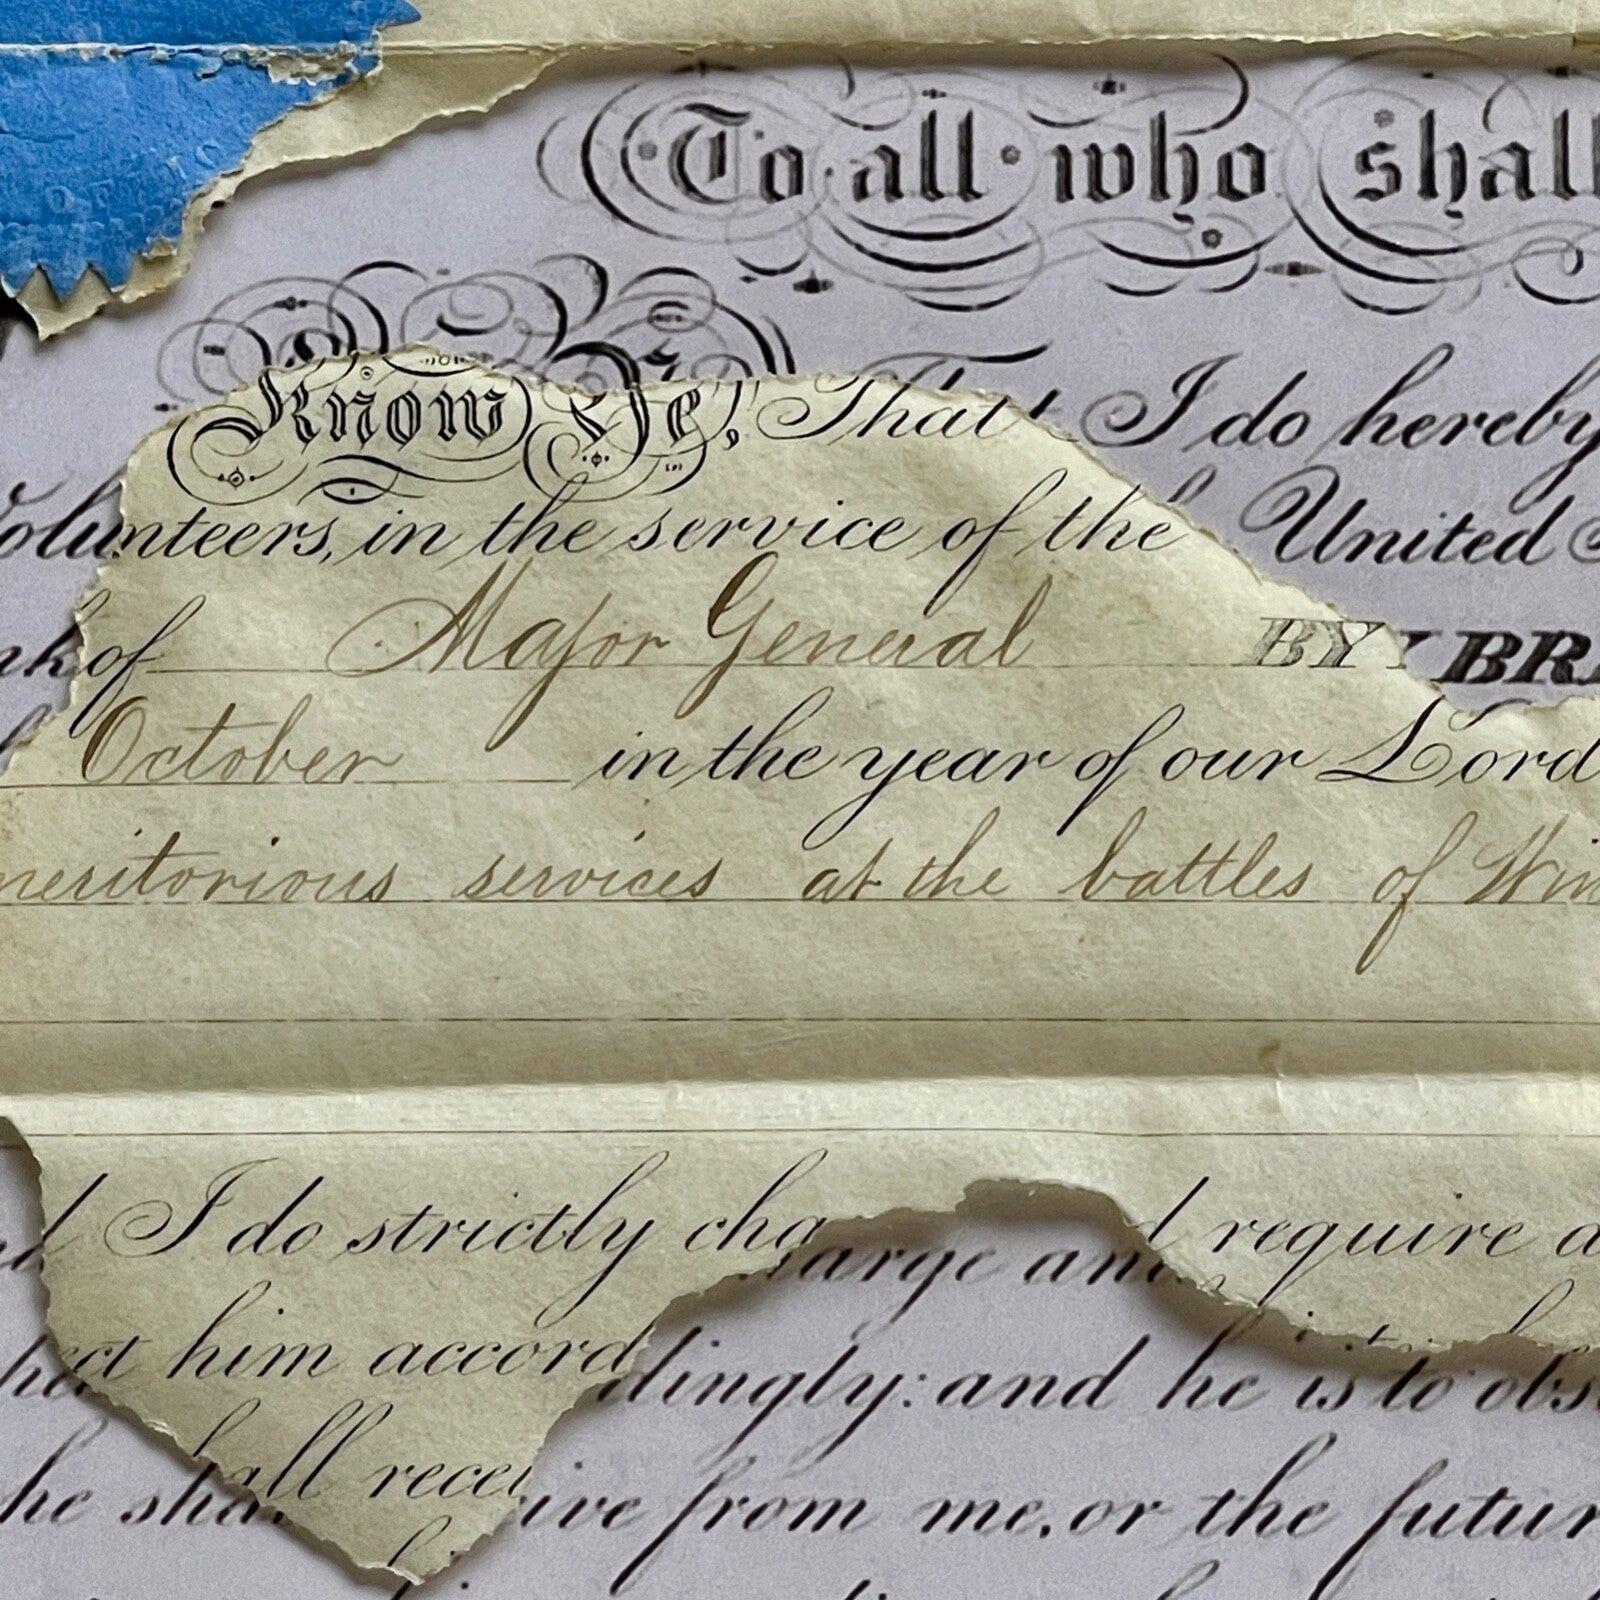 To all who shall
Know Ye, That I do hereby
Volunteers, in the service of the United
of Major General BY BR
October in the year of our Lord
meritorious services at the battles of Win
I do strictly charge and require
him accordingly: and he is to obs
he shall receive from me, or the futur